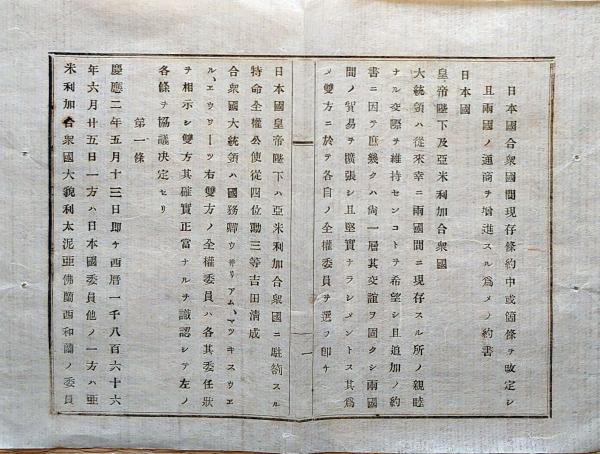 日本國合衆國間現存條約中或箇條ヲ改定シ
且兩國ノ通商ヲ增進スル爲メノ約書
日本國
皇帝陛下及亞米利加合衆國
大統領ハ從來幸ニ兩國間ニ現存スル所ノ親睦
ナル交際ヲ維持センコトヲ希望シ且追加ノ約
書ニ因テ庶幾クハ尙一層其交誼ヲ固クシ兩國
間ノ貿易ヲ擴張シ且堅實ナラシメントス其爲
メ雙方ニ於テ各自ノ全權委員ヲ選フ卽ケ
日本國皇帝陛下ハ亞米利加合衆國ニ駐箚スル
特命全權公使從四位勳三等吉田淸成
合衆國大統領ハ國務卿ウ井リアム、マツキスウエ
ル、エワワーツ右雙方ノ全權委員ハ各其委任狀
ヲ相示シ雙方其確實正當ナルヲ識認シテ左ノ
各條ヲ協議決定セリ
第一條
慶應二年五月十三日卽ケ西曆一千八百六十六
年六月廿五日一方ハ日本國委員他ノ一方ハ亞
米利加合衆國大貌利太泥亞佛蘭西和蘭ノ委員